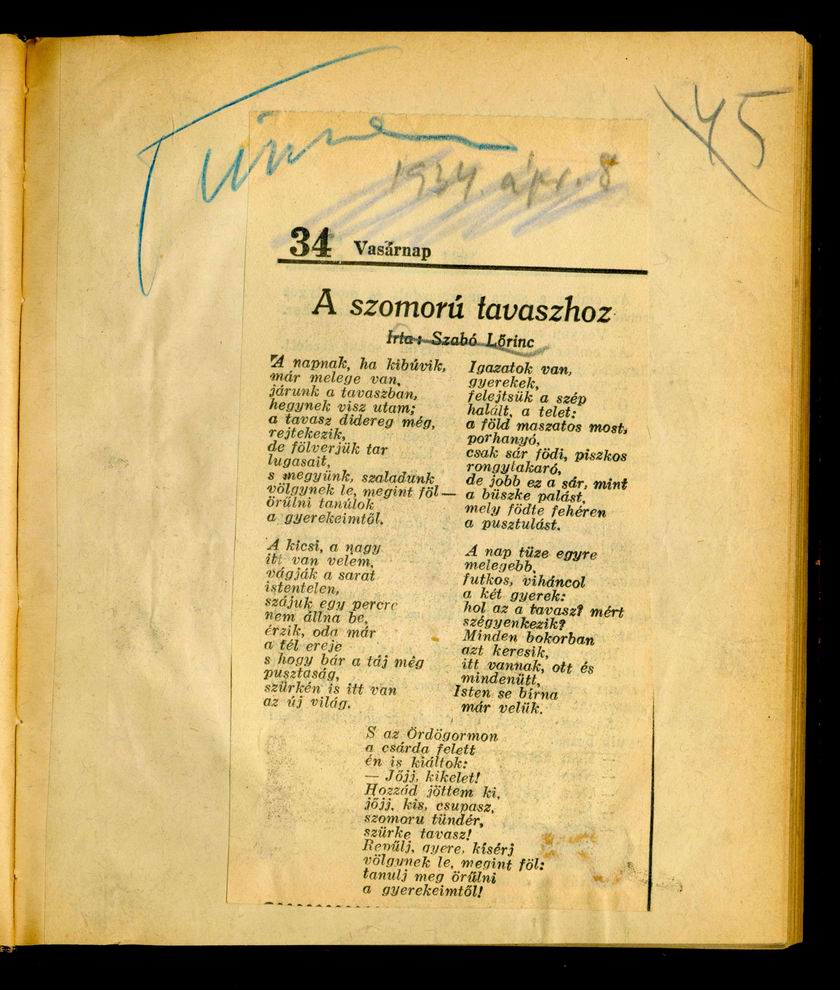 45
1934. ápr. 8
34 Vasárnap
A szomorú tavaszhoz
Irta: Szabó Lőrinc
A napnak, ha kibúvik,
már melege van,
járunk a tavaszban,
hegynek visz utam;
a tavasz didereg még,
rejtekezik,
de fölverjük tar
lugasait,
s megyünk, szaladunk
völgynek le, megint föl —
örülni tanúlok
a gyerekeimtől.
A kicsi, a nagy
itt van velem,
vágják a sarat
istentelen,
szájuk egy percre
nem állna be,
érzik, oda már
a tél ereje
s hogy bár a táj még
pusztaság,
szürkén is itt van
az új világ.
Igazatok van,
gyerekek,
felejtsük a szép
halált, a telet;
a föld maszatos most,
porhanyó,
csak sár födi, piszkos
rongytakaró,
de jobb ez a sár, mint
a büszke palást,
mely födte fehéren
a pusztulást.
A nap tüze egyre
melegebb,
futkos, viháncol
a két gyerek:
hol az a tavasz? mért
szégyenkezik?
Minden bokorban
azt keresik,
itt vannak, ott és
mindenütt,
Isten se bírna
már velük.
S az Ördögormon
a csárda felett
én is kiáltok:
— Jőjj, kikelet!
Hozzád jöttem ki,
jőjj, kis, csupasz,
szomoru tündér,
szürke tavasz!
Repülj, gyere, kísérj
völgynek le, megint föl:
tanulj meg örülni
a gyerekeimtől!